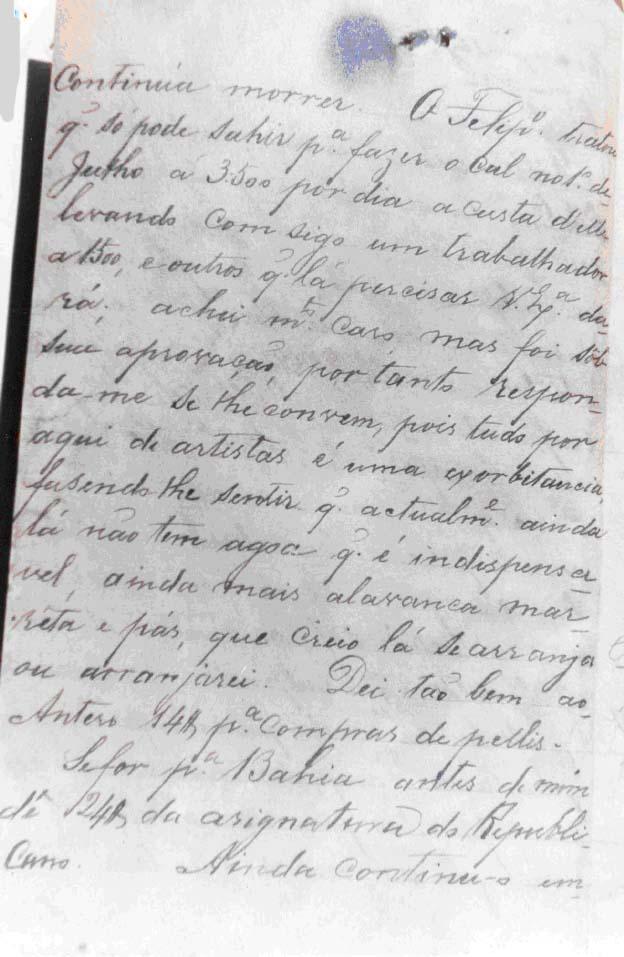 Continúa morrer. O Felipº. tratou
q. só pode sahir pª fazer o cal no 1º de
Julho a 3.500 por dia a custa d'elle
levando com sigo um trabalhador
a 1500, e outros q. lá percisar V. Exª da
rá; achei mtº caro, mas foi sob
sua aprovação, por tanto respon-
da-me se lhe convem, pois tudo por
aqui de artistas é uma exorbitancia,
fasendo lhe sentir q. actualmº. ainda
lá não tem agoa q. é indispensa-
vel, ainda mais alavanca mar-
rêta e pás, que creio lá se arranja
ou arranjarei. Dei tão bem ao
Antero 14$ pª compras de pellis.
Se for pª Bahia antes de mim
dê 24$ da asignatura do Republi-
cano. Ainda continu-o em-